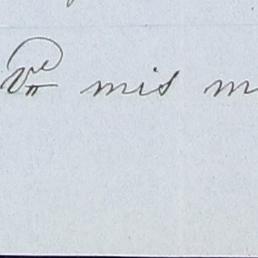 Ve mis m